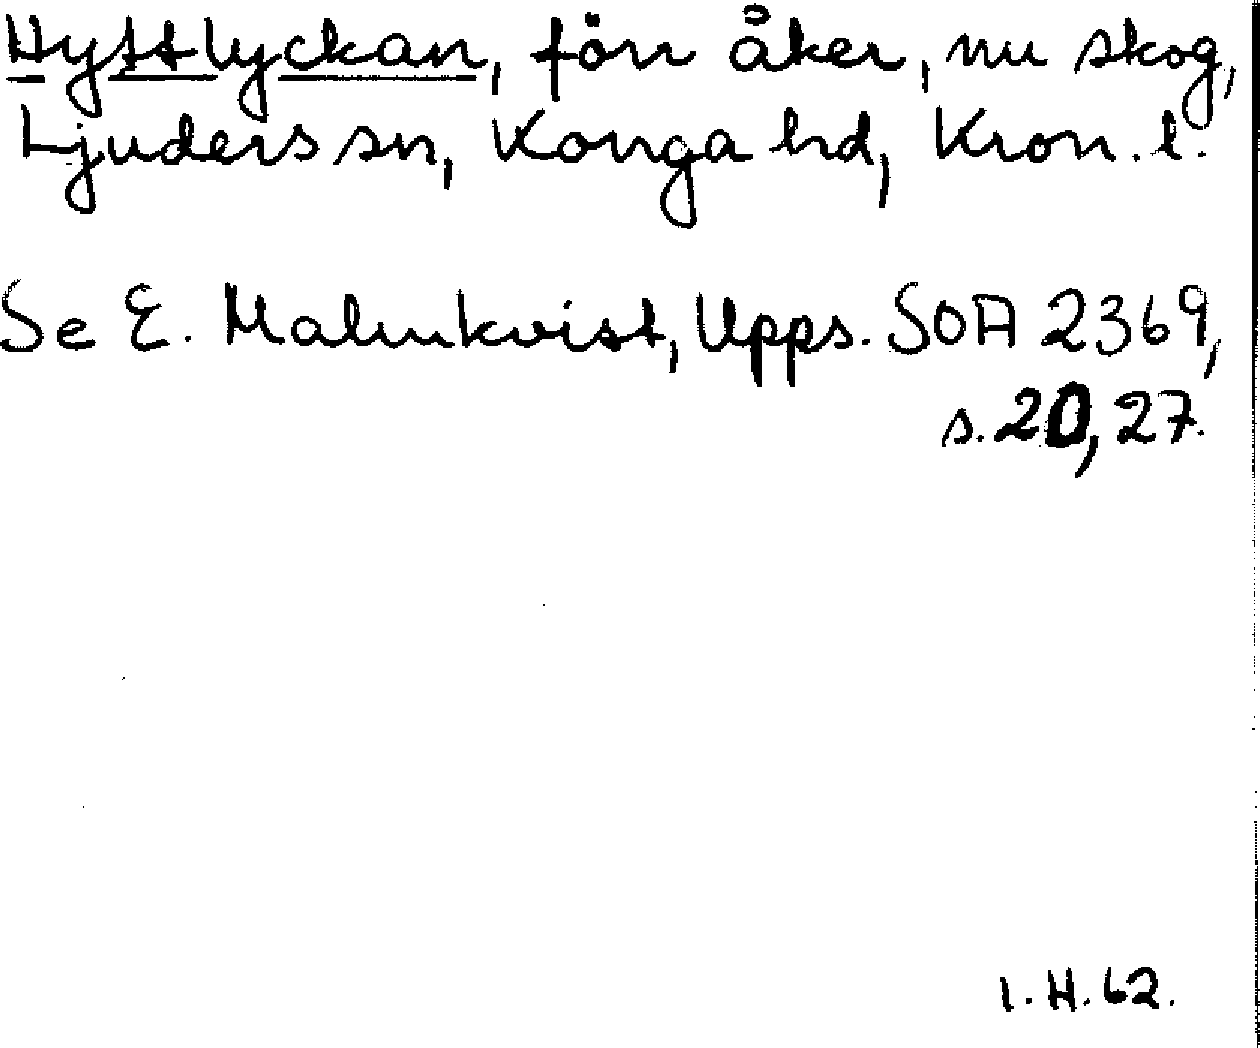 Hyttlyckan, förr åker, nu skog,
Ljuders sn, Konga hd, Kron. l.
Se E. Malmkvist, Upps. SOA 2369,
s. 20, 27.
I. H. 62.